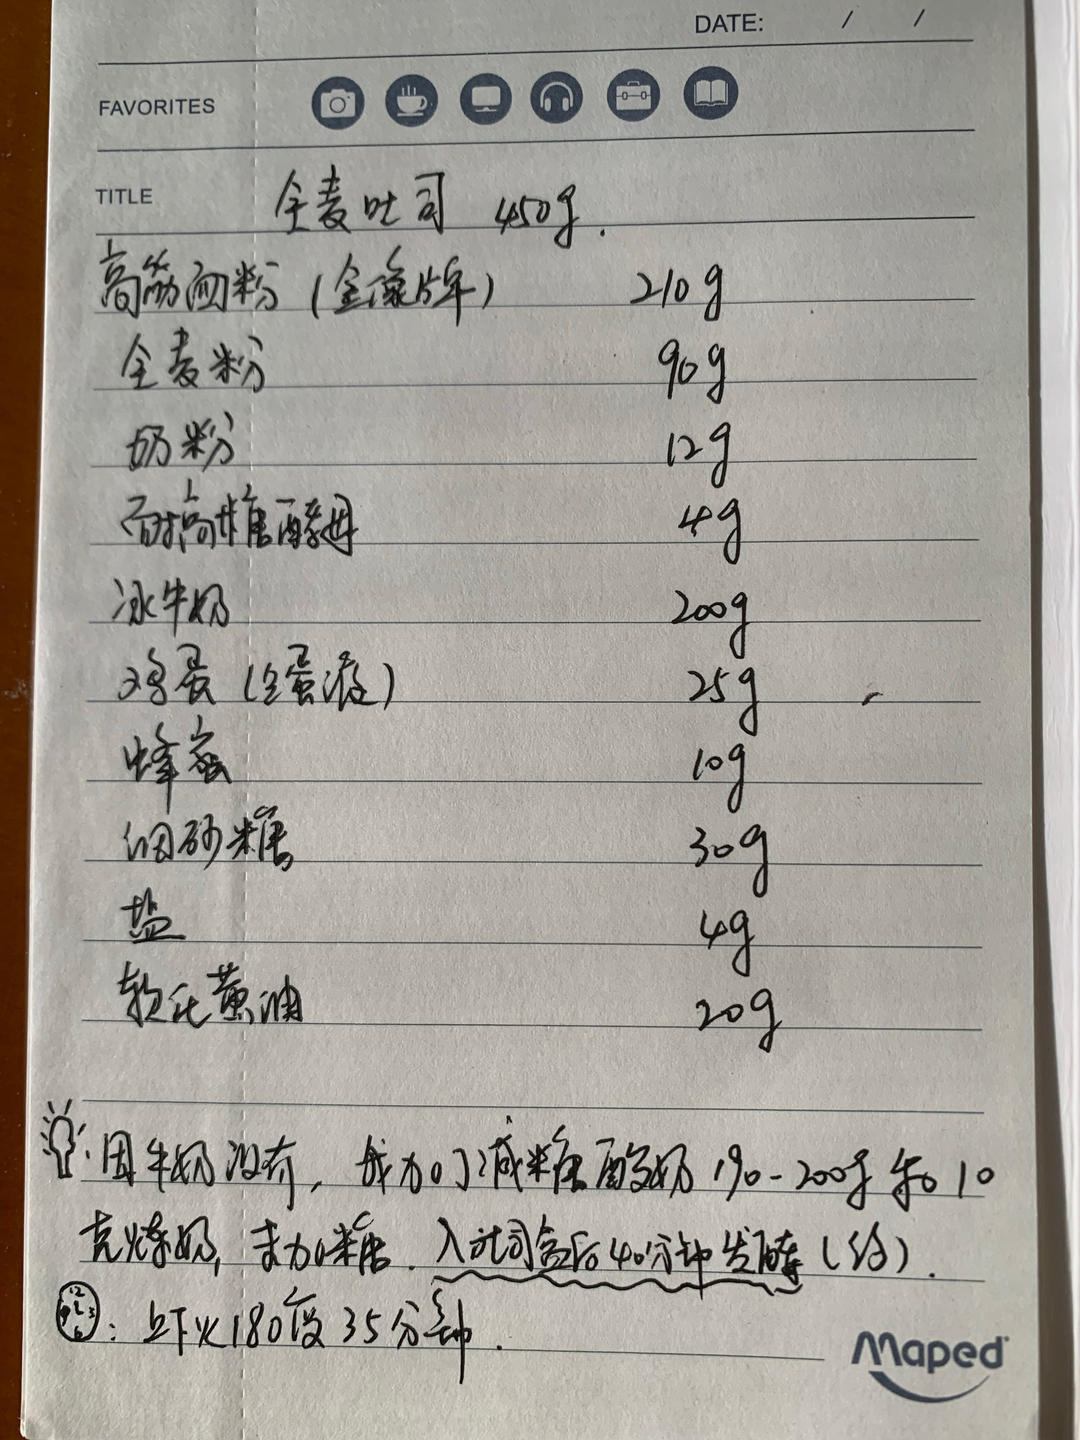 DATE: / /
FAVORITES
TITLE 全麦吐司 450g.
高筋面粉(金像牌) 210g
全麦粉 90g
奶粉 12g
耐高糖酵母 4g
冰牛奶 200g
鸡蛋(全蛋液) 25g
蜂蜜 10g
细砂糖 30g
盐 4g
软化黄油 20g
因牛奶没有, 我加了减糖酸奶190-200g和10
克炼奶, 未加糖. 入吐司盒后40分钟发酵( ).
: 上下火180度35分钟.
Maped